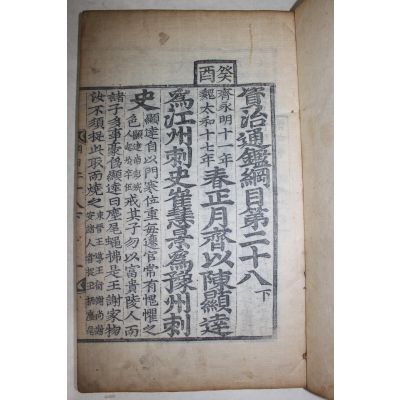 癸酉
資治通鑑綱目第二十八下
齊永明十一年
魏太和十七年
春正月齊以陳顯達
為江州刺史崔慧景為豫州刺
史
顯達自以門寒位重每遷官常有愧懼之
色
戒其子勿以富貴陵人而
諸子多事豪侈顯達曰麈尾蠅拂是王謝家物
汝不須捉此取而燒之